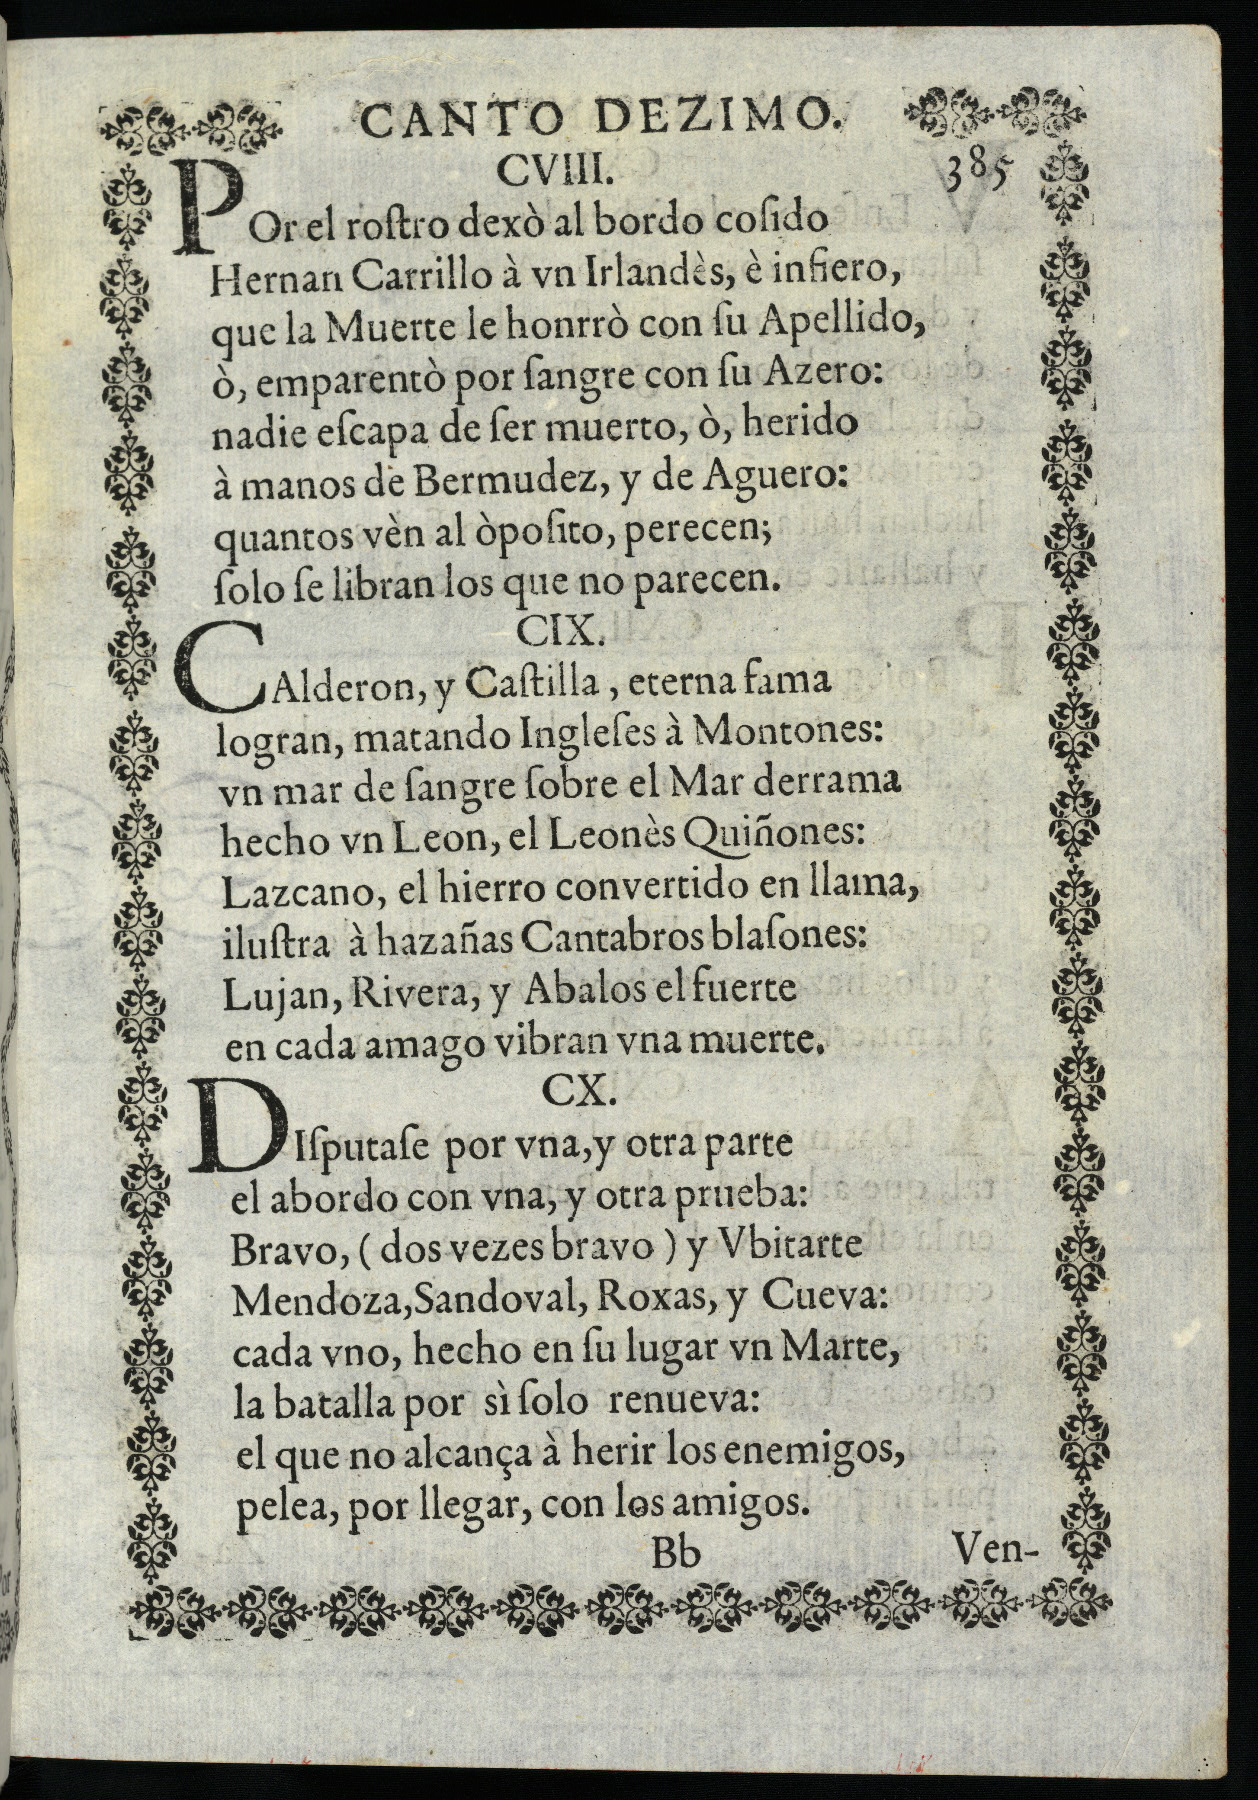 CANTO DEZIMO.
385
CVIII.
POr el roſtro dexò al bordo coſido
Hernan Carrillo à vn Irlandès, è infiero,
que la Muerte le honrrò con ſu Apellido,
ò, emparentò por ſangre con ſu Azero:
nadie eſcapa de ſer muerto, ò, herido
à manos de Bermudez, y de Aguero:
quantos vèn al òpoſito, perecen;
ſolo ſe libran los que no parecen.
CIX.
CAlderon, y Caſtilla, eterna fama
logran, matando Ingleſes à Montones:
vn mar de ſangre ſobre el Mar derrama
hecho vn Leon, el Leonès Quiñones:
Lazcano, el hierro convertido en llama,
iluſtra à hazañas Cantabros blaſones:
Lujan, Rivera, y Abalos el fuerte
en cada amago vibran vna muerte.
CX.
DIſputaſe por vna, y otra parte
el abordo con vna, y otra prueba:
Bravo, (dos vezes bravo) y Vbitarte
Mendoza, Sandoval, Roxas, y Cueva:
cada vno, hecho en ſu lugar vn Marte,
la batalla por sì ſolo renueva:
el que no alcança à herir los enemigos,
pelea, por llegar, con los amigos.
Bb
Ven-